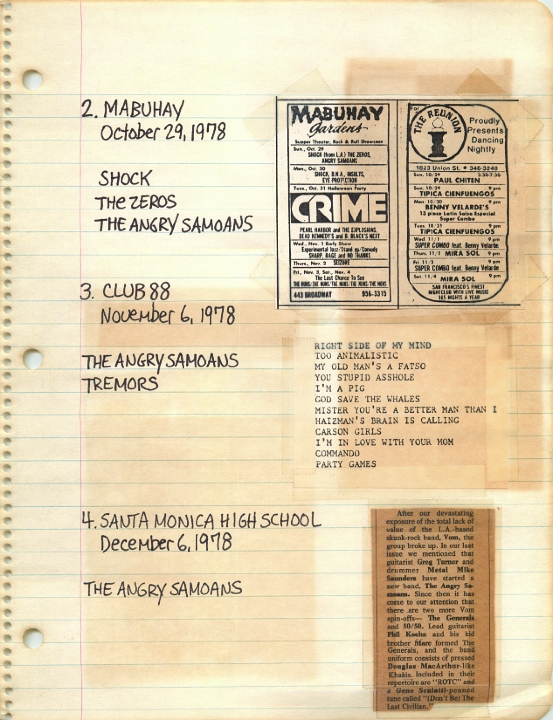 2. MABUHAY
October 29, 1978
SHOCK
THE ZEROS
THE ANGRY SAMOANS
MABUHAY
Gardens
Supper Theater, Rock & Roll Showcase
Sun., Oct. 29
SHOCK (from L.A.) THE ZEROS,
ANGRY SAMOANS
Mon., Oct. 30
SHOCK, D.N.A., INSULTS,
EYE PROTECTION
Tue., Oct. 31 Halloween Party
CRIME
PEARL HARBOR and THE EXPLOSIONS,
DEAD KENNEDY'S and D. BLACK'S NEXT
Wed., Nov. 1 Early Show
Experimental Jazz/Stand up/Comedy
SHARP, RAGE and NO THANKS
Thurs., Nov. 2 SEIZURE
Fri., Nov. 3, Sat., Nov. 4
The Last Chance to See
THE NUNS/THE NUNS/THE NUNS/THE NUNS
443 BROADWAY 956-3315
THE REUNION
Proudly
Presents
Dancing
Nightly
1823 Union St. • 346-3248
Sun. 10/29
PAUL CHITEN
Sun. 10/29 9 pm
TIPICA CIENFUEGOS
Mon. 10/30 9 pm
BENNY VELARDE'S
13 piece Latin Salsa Especial
Super Combo
Tues. 10/31 9 pm
TIPICA CIENFUEGOS
Wed. 11/1 9 pm
SUPER COMBO feat. Benny Velarde
Thurs. 11/2 MIRA SOL 9 pm
Fri. 11/3 9 pm
SUPER COMBO feat. Benny Velarde
Sat. 11/4 MIRA SOL 9 pm
SAN FRANCISCO'S FINEST
NIGHTCLUB WITH LIVE MUSIC
365 NIGHTS A YEAR
3. CLUB 88
November 6, 1978
THE ANGRY SAMOANS
TREMORS
RIGHT SIDE OF MY MIND
TOO ANIMALISTIC
MY OLD MAN'S A FATSO
YOU STUPID ASSHOLE
I'M A PIG
GOD SAVE THE WHALES
MISTER YOU'RE A BETTER MAN THAN I
HAIZMAN'S BRAIN IS CALLING
CARSON GIRLS
I'M IN LOVE WITH YOUR MOM
COMMANDO
PARTY GAMES
4. SANTA MONICA HIGH SCHOOL
December 6, 1978
THE ANGRY SAMOANS
After our devastating
exposure of the total lack of
value of the L.A.-based
skunk-rock band, Vom, the
group broke up. In our last
issue we mentioned that
guitarist Greg Turner and
drummer Metal Mike
Saunders have started a
new band, The Angry Sa-
moans. Since then it has
come to our attention that
there are two more Vom
spin-offs— The Generals
and 50/50. Lead guitarist
Phil Koehn and his kid
brother Marc formed The
Generals, and the band
uniform consists of pressed
Douglas MacArthur-like
Khakis. Included in their
repertoire are "ROTC" and
a Gene Sculatti-penned
tune called "(Don't Be) The
Last Civilian."